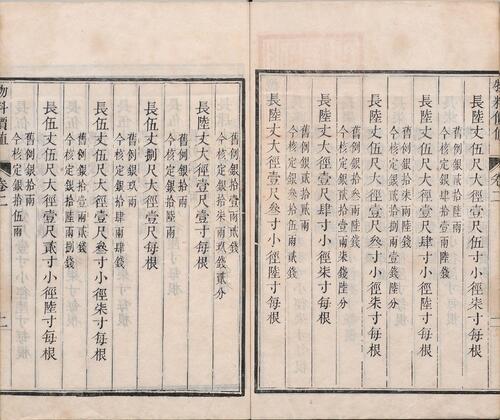 長陸丈大徑壹尺伍寸小徑柒寸每根
舊例銀貳拾陸兩
今核定銀貳拾壹兩陸錢
長陸丈大徑壹尺肆寸小徑陸寸每根
舊例銀拾柒兩貳錢
今核定銀拾捌兩壹錢陸分
長陸丈大徑壹尺叁寸小徑柒寸每根
舊例銀拾叁兩貳錢
今核定銀貳拾壹兩柒錢陸分
長陸丈大徑壹尺肆寸小徑柒寸每根
舊例銀貳拾兩
今核定銀叁拾貳兩
長陸丈大徑壹尺叁寸小徑陸寸每根
舊例銀拾壹兩貳錢
今核定銀拾柒兩玖錢貳分
長陸丈大徑壹尺壹寸每根
舊例銀拾兩
今核定銀拾陸兩
長伍丈捌尺大徑壹尺每根
舊例銀玖兩
今核定銀拾肆兩肆錢
長伍丈伍尺大徑壹尺叁寸小徑柒寸每根
舊例銀拾兩
今核定銀拾陸兩捌錢
長伍丈伍尺大徑壹尺貳寸小徑陸寸每根
舊例銀拾兩
今核定銀拾伍兩
物料價值
卷二